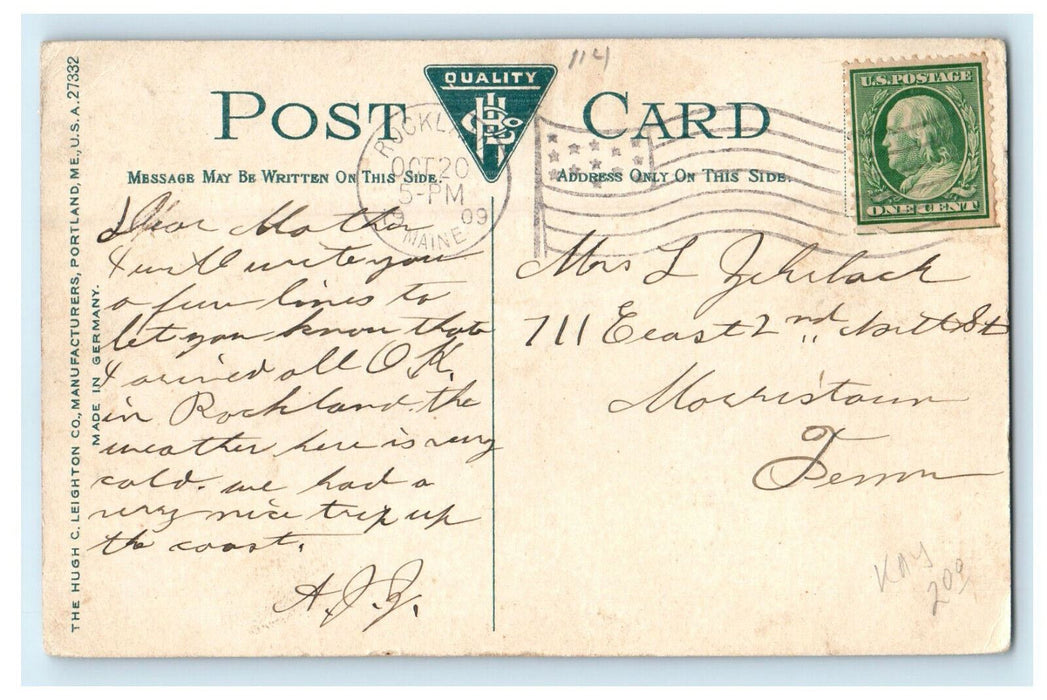 114
QUALITY
POST CARD
MESSAGE MAY BE WRITTEN ON THIS SIDE.
ADDRESS ONLY ON THIS SIDE.
ROCKLAND
OCT 20
5-PM
1909
MAINE
U.S. POSTAGE
ONE CENT
THE HUGH C. LEIGHTON CO., MANUFACTURERS, PORTLAND, ME., U.S.A. 27332
MADE IN GERMANY.
Dear Mother
I will write you
a few lines to
let you know that
I arrived all O.K.
in Rockland. the
weather here is very
cold. we had a
very nice trip up
the coast.
A.J.Z.
Mrs L Zehrlack
711 East 2nd St
Morristown
Tenn
KAY
200